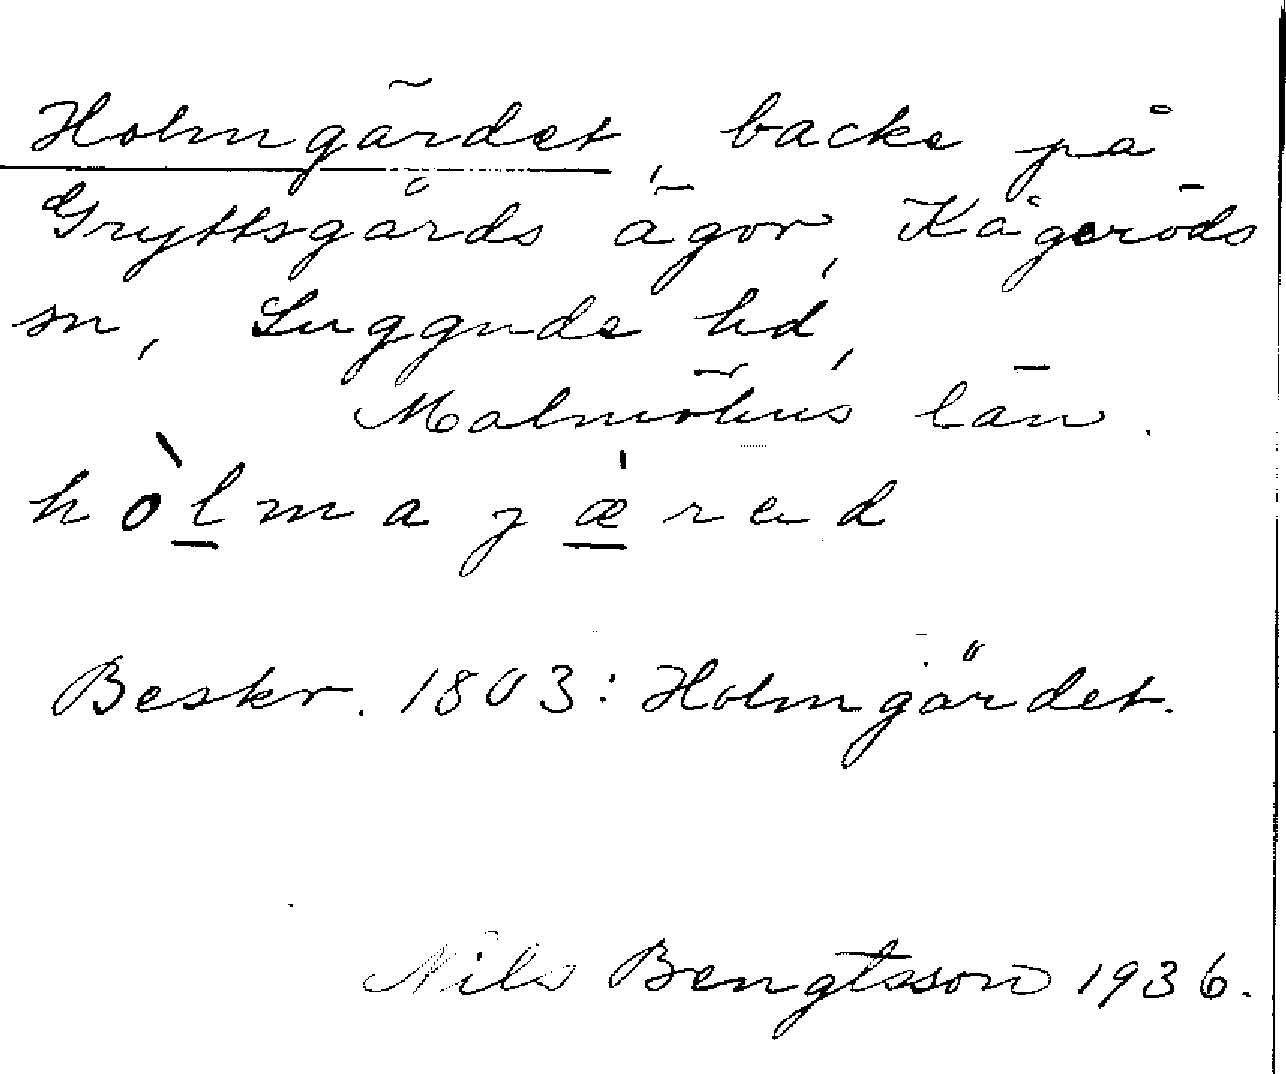 Holmgärdet, backe på
Gryttsgårds ägor, Kågeröds
sn, Luggude hd,
Malmöhus län.
hòlmajæ̀rad
Beskr. 1803: Holmgärdet.
Nils Bengtsson 1936.